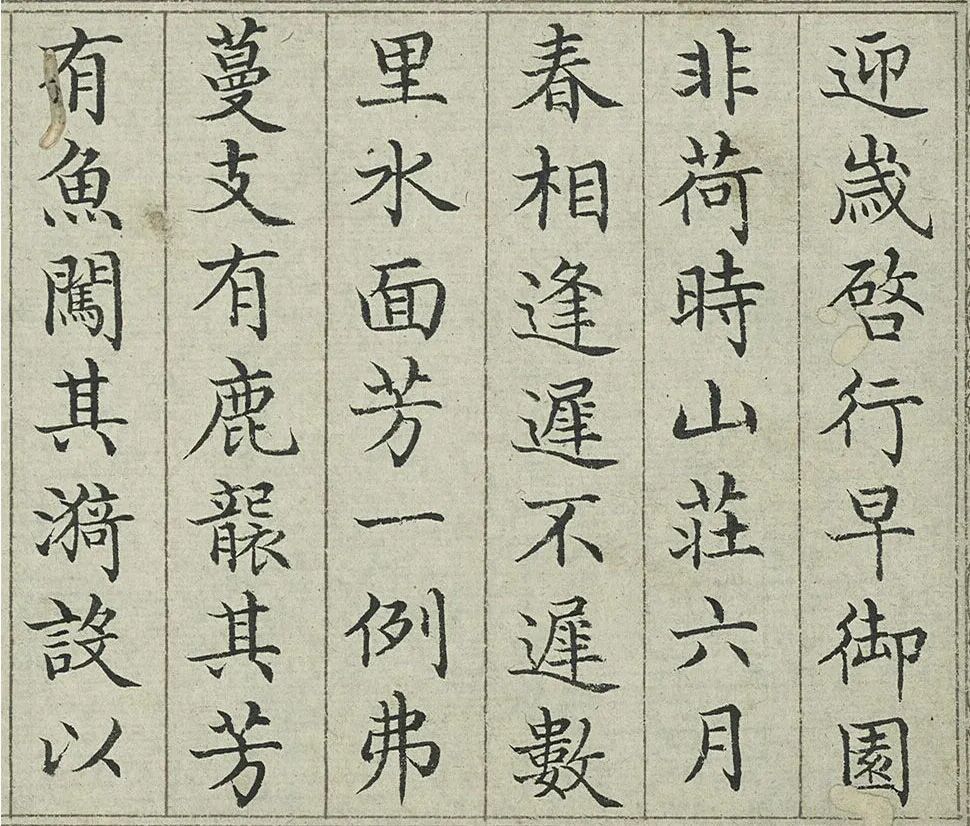 迎歲啓行早御園
非荷時山荘六月
春相逢遲不遲數
里水面芳一例弗
蔓支有鹿襲其芳
有魚闖其漪設以